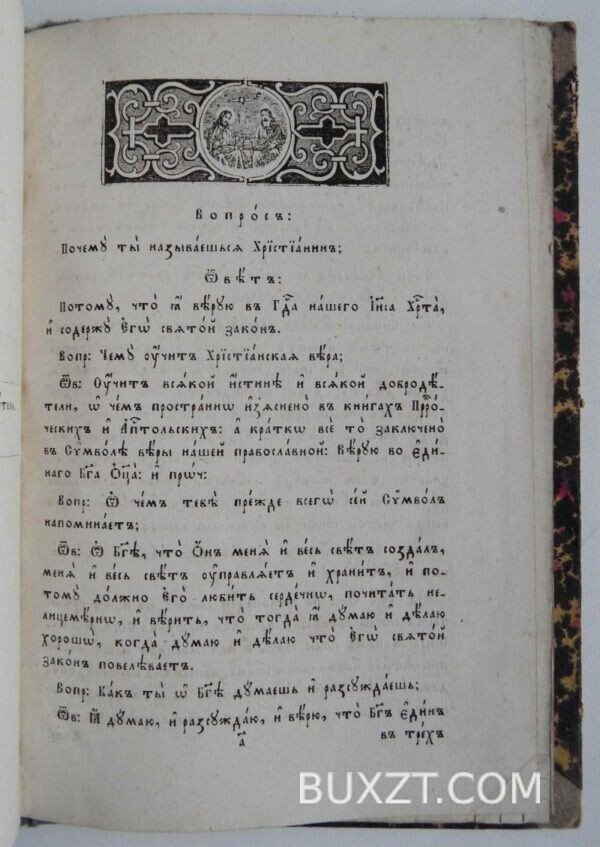 Вопро́съ:
Почемꙋ̀ ты̀ называ́ешься Хрїстїа́нинъ;
Ѿвѣ́тъ:
Потомꙋ̀, что̀ ꙗ҆̀ вѣ́рꙋю въ Гдⷭ҇а на́шего І҆и҃са Хрⷭ҇та̀,
и҆ содержꙋ̀ Є҆гѡ̀ свято́й зако́нъ.
Вопр: Чемꙋ̀ ᲂу҆́читъ Хрїстїа́нская вѣ́ра;
Ѿв: Оу҆́читъ вся́кой и҆́стинѣ и҆ вся́кой добродѣ́-
тели, ѡ҆ че́мъ простра́ннѡ и҆з̾яснено̀ въ кни́гахъ Прⷪ҇ро́-
ческихъ и҆ А҆пⷭ҇тольскихъ: а҆ кра́ткѡ всѐ то̀ заключено̀
въ Сѷ́мволѣ вѣ́ры на́шей правосла́вной: Вѣ́рꙋю во є҆ди́-
наго Бг҃а Ѻ҆ц҃а̀: и҆ про́ч:
Вопр: Ѻ҆ че́мъ тебѣ̀ пре́жде всегѡ̀ се́й Сѷ́мволъ
напомина́етъ;
Ѿв: Ѻ҆ Бг҃ѣ, что̀ Ѻ҆́нъ меня̀ и҆ ве́сь свѣ́тъ созда́лъ,
меня̀ и҆ ве́сь свѣ́тъ ᲂу҆правля́етъ и҆ храни́тъ, и҆ по-
томꙋ̀ до́лжно Є҆го̀ люби́ть серде́чнѡ, почита́ть не-
лицемѣ́рнѡ, и҆ вѣ́рить, что̀ тогда̀ ꙗ҆̀ дꙋ́маю и҆ дѣ́лаю
хорошѡ̀, когда̀ дꙋ́маю и҆ дѣ́лаю что̀ Є҆гѡ̀ свято́й
зако́нъ повелѣва́етъ.
Вопр: Ка́къ ты̀ ѡ҆ Бг҃ѣ дꙋ́маешь и҆ разсꙋжда́ешь;
Ѿв: Ꙗ҆̀ дꙋ́маю, и҆ разсꙋжда́ю, и҆ вѣ́рю, что̀ Бг҃ъ є҆ди́нъ
а҃
въ тре́хъ
BUXZT.COM